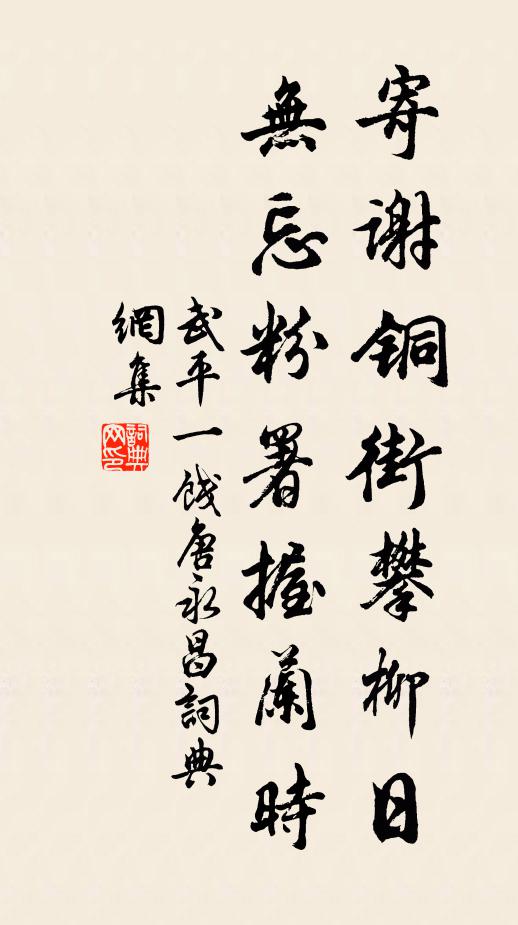 寄谢铜街攀柳日
無忘粉署握蘭時
武平一餞唐永昌詞典
網集
詞典網印